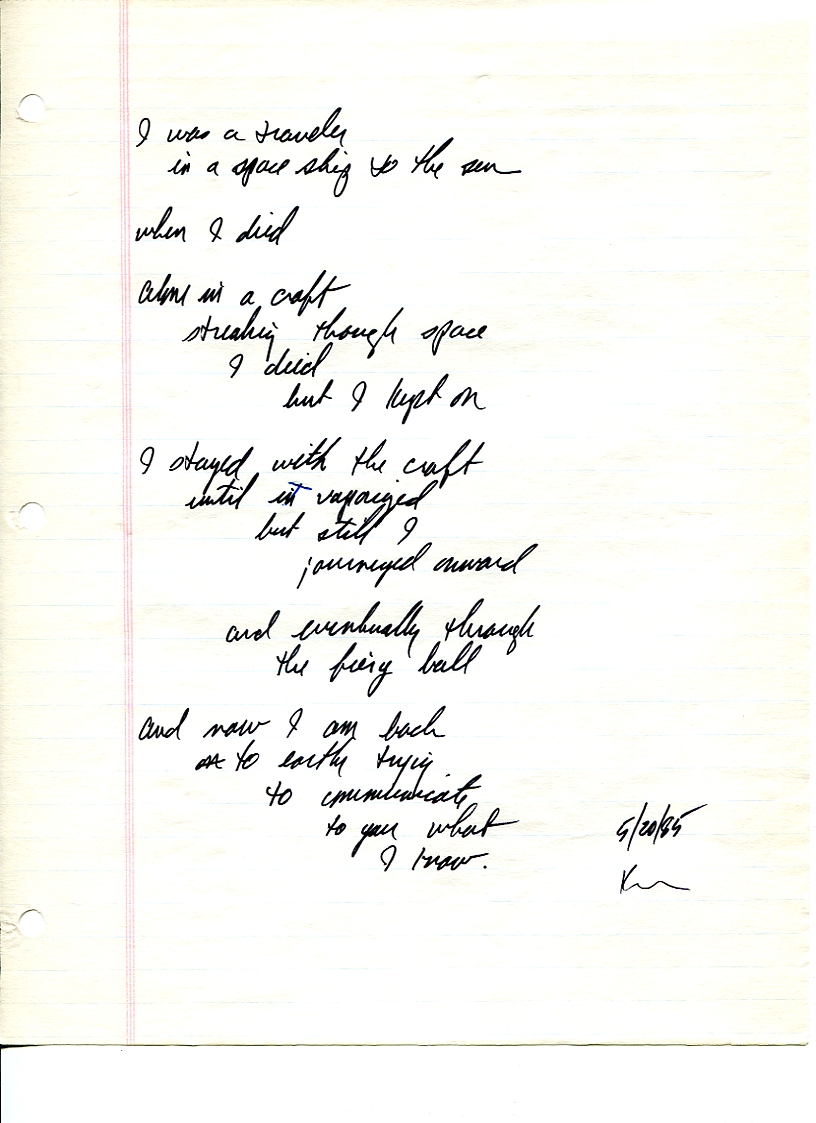 I was a traveler
in a space ship to the sun
when I died
alone in a craft
streaking though space
I died
but I kept on
I stayed with the craft
until it vaporized
but still I
journeyed onward
and eventually through
the fiery ball
and now I am back
to earth trying
to communicate
to you what
I know.
5/20/85